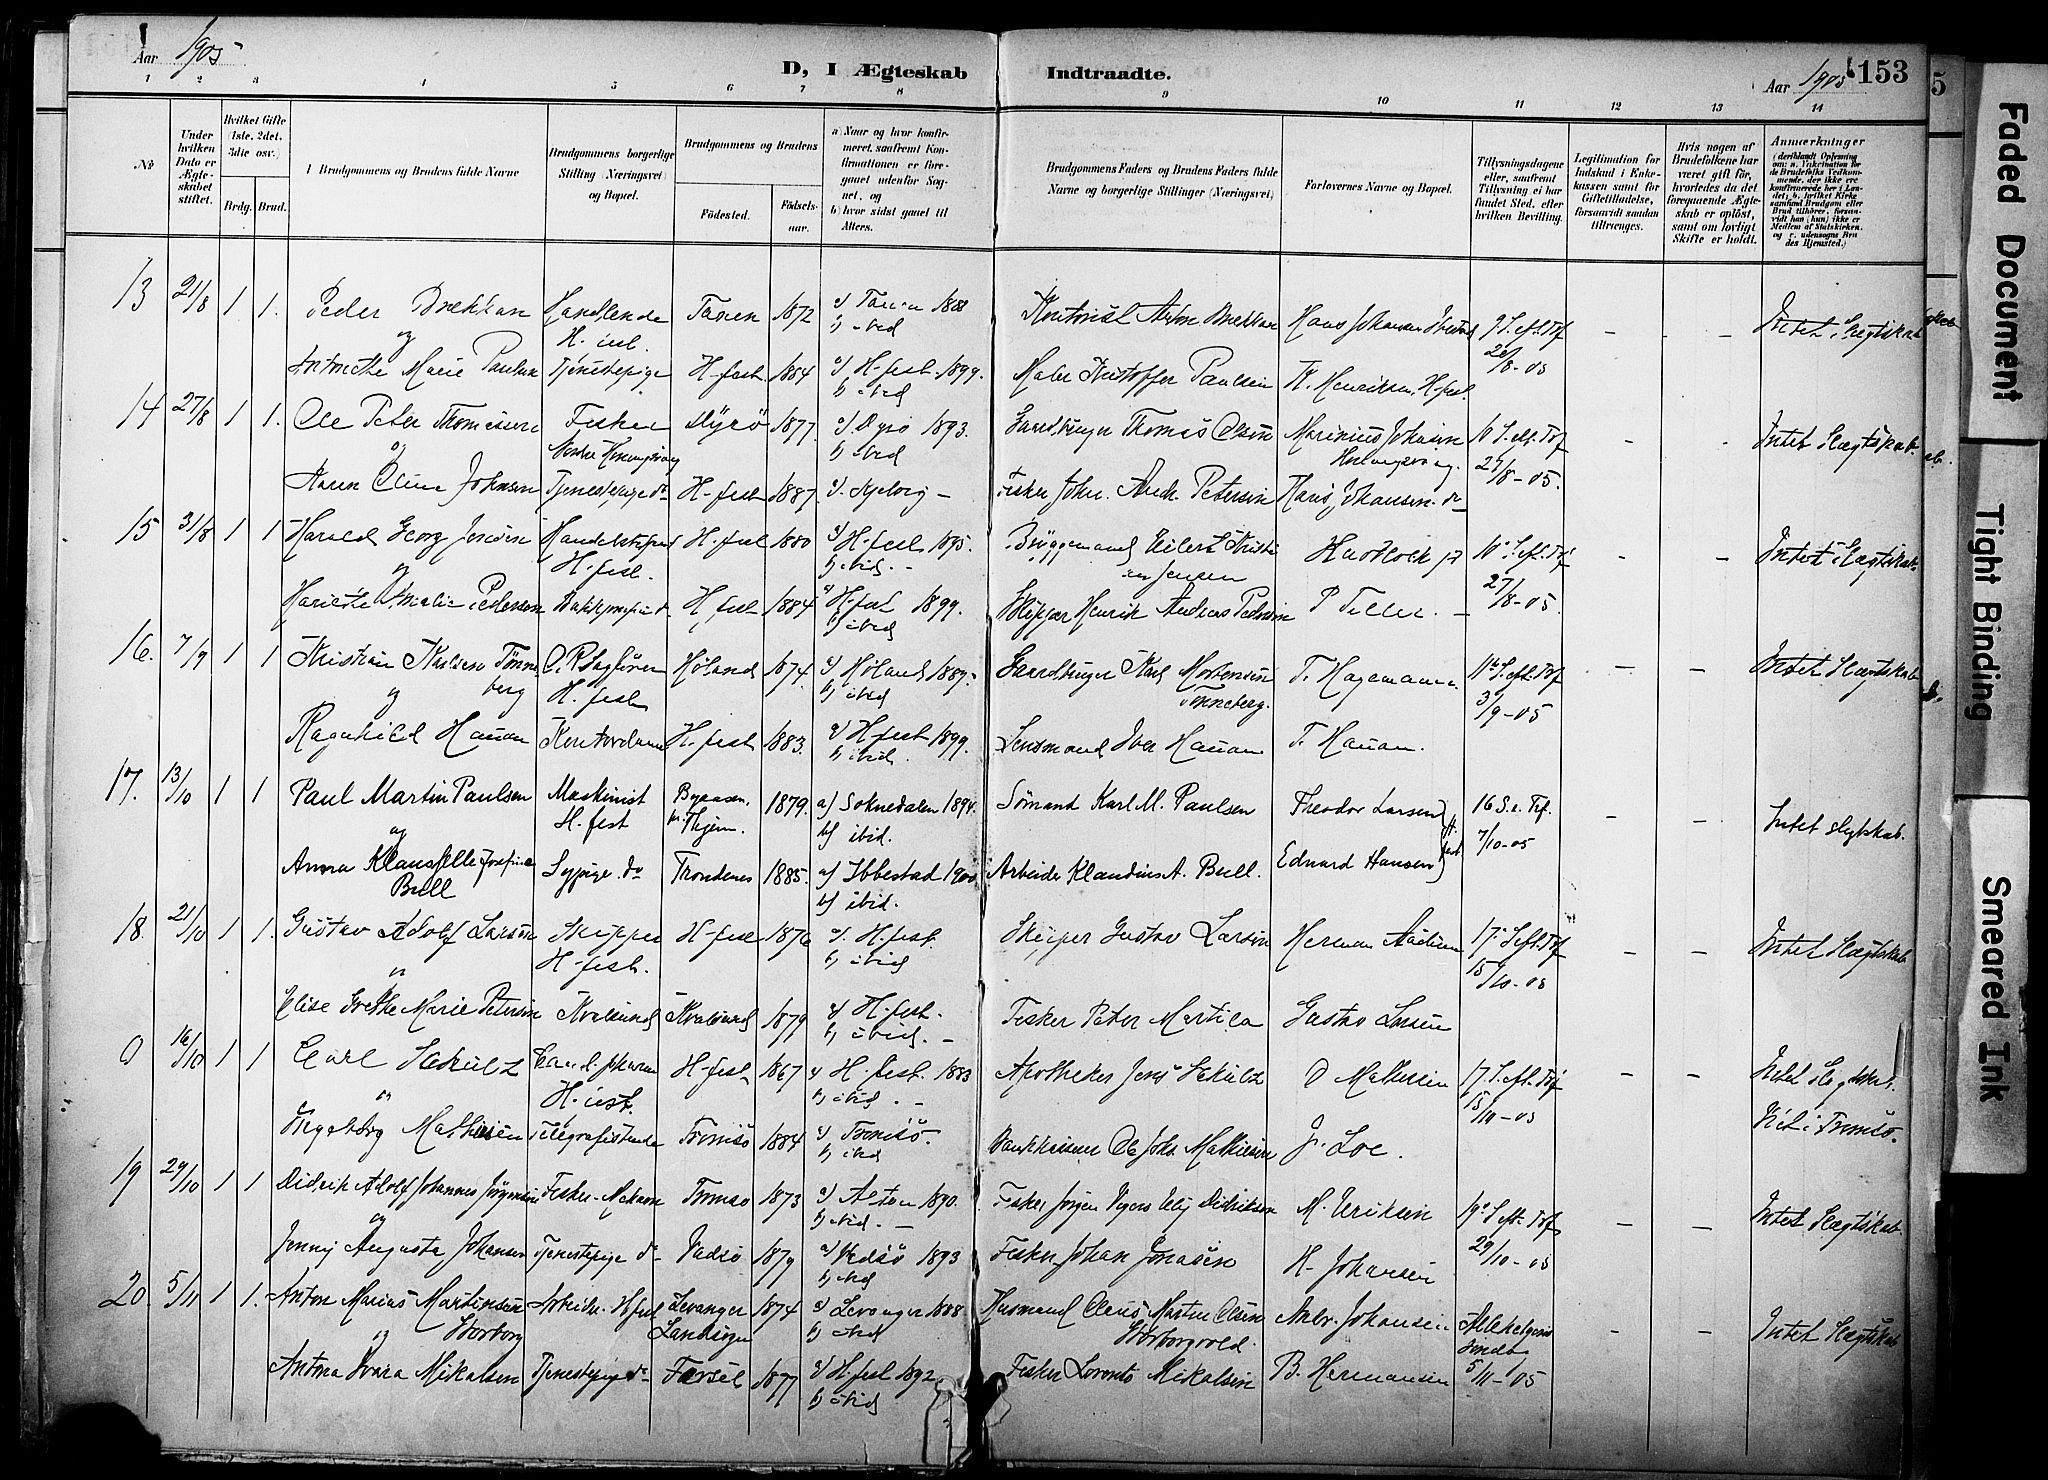 Aar 1905
D, I Ægteskab Indtraadte.
Aar 1905 153
1 2 3 4 5 6 7 8 9 10 11 12 13 14
No
Under hvilken Dato er Ægteskabet stiftet.
Hvilket Gifte (1ste, 2det, 3die osv.)
Brdg. Brud.
Brudgommens og Brudens fulde Navne
Brudgommens borgerlige Stilling (Næringsvei) og Bopæl.
Brudgommens og Brudens
Fødested. Fødselsaar.
a) Naar og hvor konfirmeret, saafremt Konfirmationen er foregaaet udenfor Sognet, og
b) hvor sidst gaaet til Alters.
Brudgommens Faders og Brudens Faders fulde Navne og borgerlige Stillinger (Næringsvei)
Forlovernes Navne og Bopæl.
Tillysningsdagene eller, saafremt Tillysning ei har fundet Sted, efter hvilken Bevilling.
Legitimation for Indskud i Enkekassen samt for Giftetilladelse, forsaavidt saadan tiltrænges.
Hvis nogen af Brudefolkene har været gift før, hvorledes da det foregaaende Ægteskab er opløst, samt om lovligt Skifte er holdt.
Anmærkninger
13 21/8 1 1. Peder Brekkan Handlende Tanen 1872 a) Tanen 1888 Kontorist Anton Brekkan 9 S. eft. Tref Intet Slægtskab
og H. fest. b) ibid 20/8-05
Antonette Marie Paulsen Tjenestepige H-fest. 1884 a) H-fest. 1899. Maler Kristoffer Paulsen K. Henriksen, H-fest.
b) ibid
14 27/8 1 1. Ole Peter Thomassen Fisker Dyrø 1877. a) Dyrø 1893. Gaardbruger Thomas Olsen Marinius Johansen 10 S. eft. Tref Intet Slægtskab.
og b) ibid 27/8-05.
Karen Oline Johnsen Tjenestepige do H-fest 1887 a) Kjelvig - Fisker John Andr. Petersen Hans Johansen do
15 31/8 1 1 Harald Georg Jensen H-fest 1880 a) H-fest 1895. Bryggemand Eilert Kristian Jensen 10 S. eft. Tref Intet Slægtskab
og H. fest. b) ibid. 27/8-05.
Hariette Amalie Pedersen H. fest 1884 a) H-fest 1899. Skipper Henrik Andreas Pedersen P Teller.
b) ibid
16. 7/9 1 1 Kristian Karlsen Tønneberg O.R.Sagfører Høland 1874. a) Høland 1889. Gaardbruger Karl Mortensen Tønneberg. T. Hagemann 11te S. eft. Tref Intet Slægtskab
og H. fest b) ibid 3/9-05
Ragnhild Hauan Kontordame H-fest 1883. a) H fest 1899. Lensmand Iver Hauan T. Hauan.
b) ibid.
17. 13/10 1 1 Paul Martin Paulsen Maskinist Byaasen pr. Thjem. 1879. a) Soknedalen 1894. Sømand Karl M. Paulsen Theodor Larsen 16 S. e. Tref. Intet slegtskab.
og H. fest b) ibid. H. fest 7/10-05
Anna Klauselle Josefine Bull Sypige. do Trondenes 1885. a) Ibbestad 1900. Arbeider Klaudius A. Bull. Edvard Hansen
b) ibid.
18. 21/10 1 1. Gustav Adolf Larsen Skipper H-fest 1876 a). H-fest. Skipper Gustav Larsen 17. S. eft. Tref Intet Slægtskab
og H-fest. b) ibid 15/10-05
Elise Grethe Marie Petersen Kvalsund Kvalsund 1879 a) H-fest. Fisker Peter Martila Gustav Larsen
b) ibid. -
0 16/10 1 1 Carl Schultz Cand. pharm H-fest 1867 a) H. fest. 1883 Apotheker Jens Schultz O Mathisen 17. S. eft. Tref Intet Slegtskab.
og H. fest. b) ibid. - 15/10-05 Viet i Tromsø.
Ingeborg Mathisen Telegrafistinde Tromsø 1884 a) Tromsø. Bankkasserer Ole Johs. Mathisen J. Loe.
b) ibid
19 29/10 1 1 Didrik Adolf Johannes Jørgensen Tromsø 1873 a) Alten 1890. M. Eriksen 19. S. eft. Tref Intet Slægtskab.
og b) ibid. -
Jenny Augusta Johansen Tjenestepige do Vadsø 1879 a) Vadsø 1893 Fisker Johan Jonasen H. Johansen 29/10-05
b) ibid
20. 5/11 1 1. Anton Marius Martinsen Storborg Arbeider H fest Levanger Landsogn 1874 a) Levanger 1888 Husmand Oleus Martin Olsen Storborgvold. Anbr. Johansen Allehelgens sindt Intet Slægtskab
og b) ibid
Antona Svara Mikalsen Tjenestepige do Forsøl 1877 a) H. fest 1892. Fisker Lorents Mikalsen B. Hermansen 5/11-05
b) ibid
5
Faded Document
Tight Binding
Smeared Ink